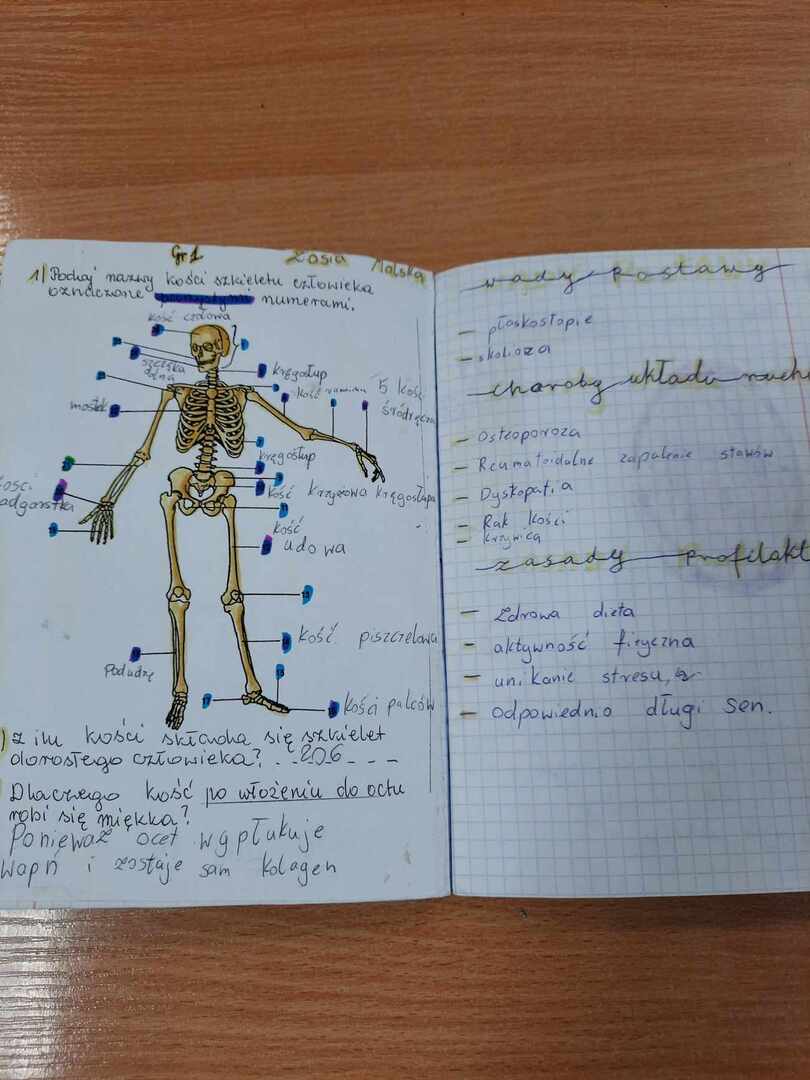 Gr 1 Zosia Malska
1) Podaj nazwy kości szkieletu człowieka
oznaczone numerami.
kość czołowa
szczęka
dolna
kręgosłup
kość ramienia
5 kość
śródręcza
mostek
kręgosłup
kość krzyżowa kręgosłupa
kości
nadgarstka
11
kość
udowa
13
kość piszczelowa
Podudzę
15
17
kości palców
) Z ilu kości składa się szkielet
dorosłego człowieka? 206
Dlaczego kość po włożeniu do octu
robi się miękka?
Ponieważ ocet wypłukuje
wapń i zostaje sam kolagen
wady postawy
– płaskostopie
– skolioza
choroby układu ruchu
– Osteoporoza
– Reumatoidalne zapalenie stawów
– Dyskopatia
– Rak kości
– krzywica
zasady profilakt
– Zdrowa dieta
– aktywność fizyczna
– unikanie stresu,
– odpowiednio długi sen.